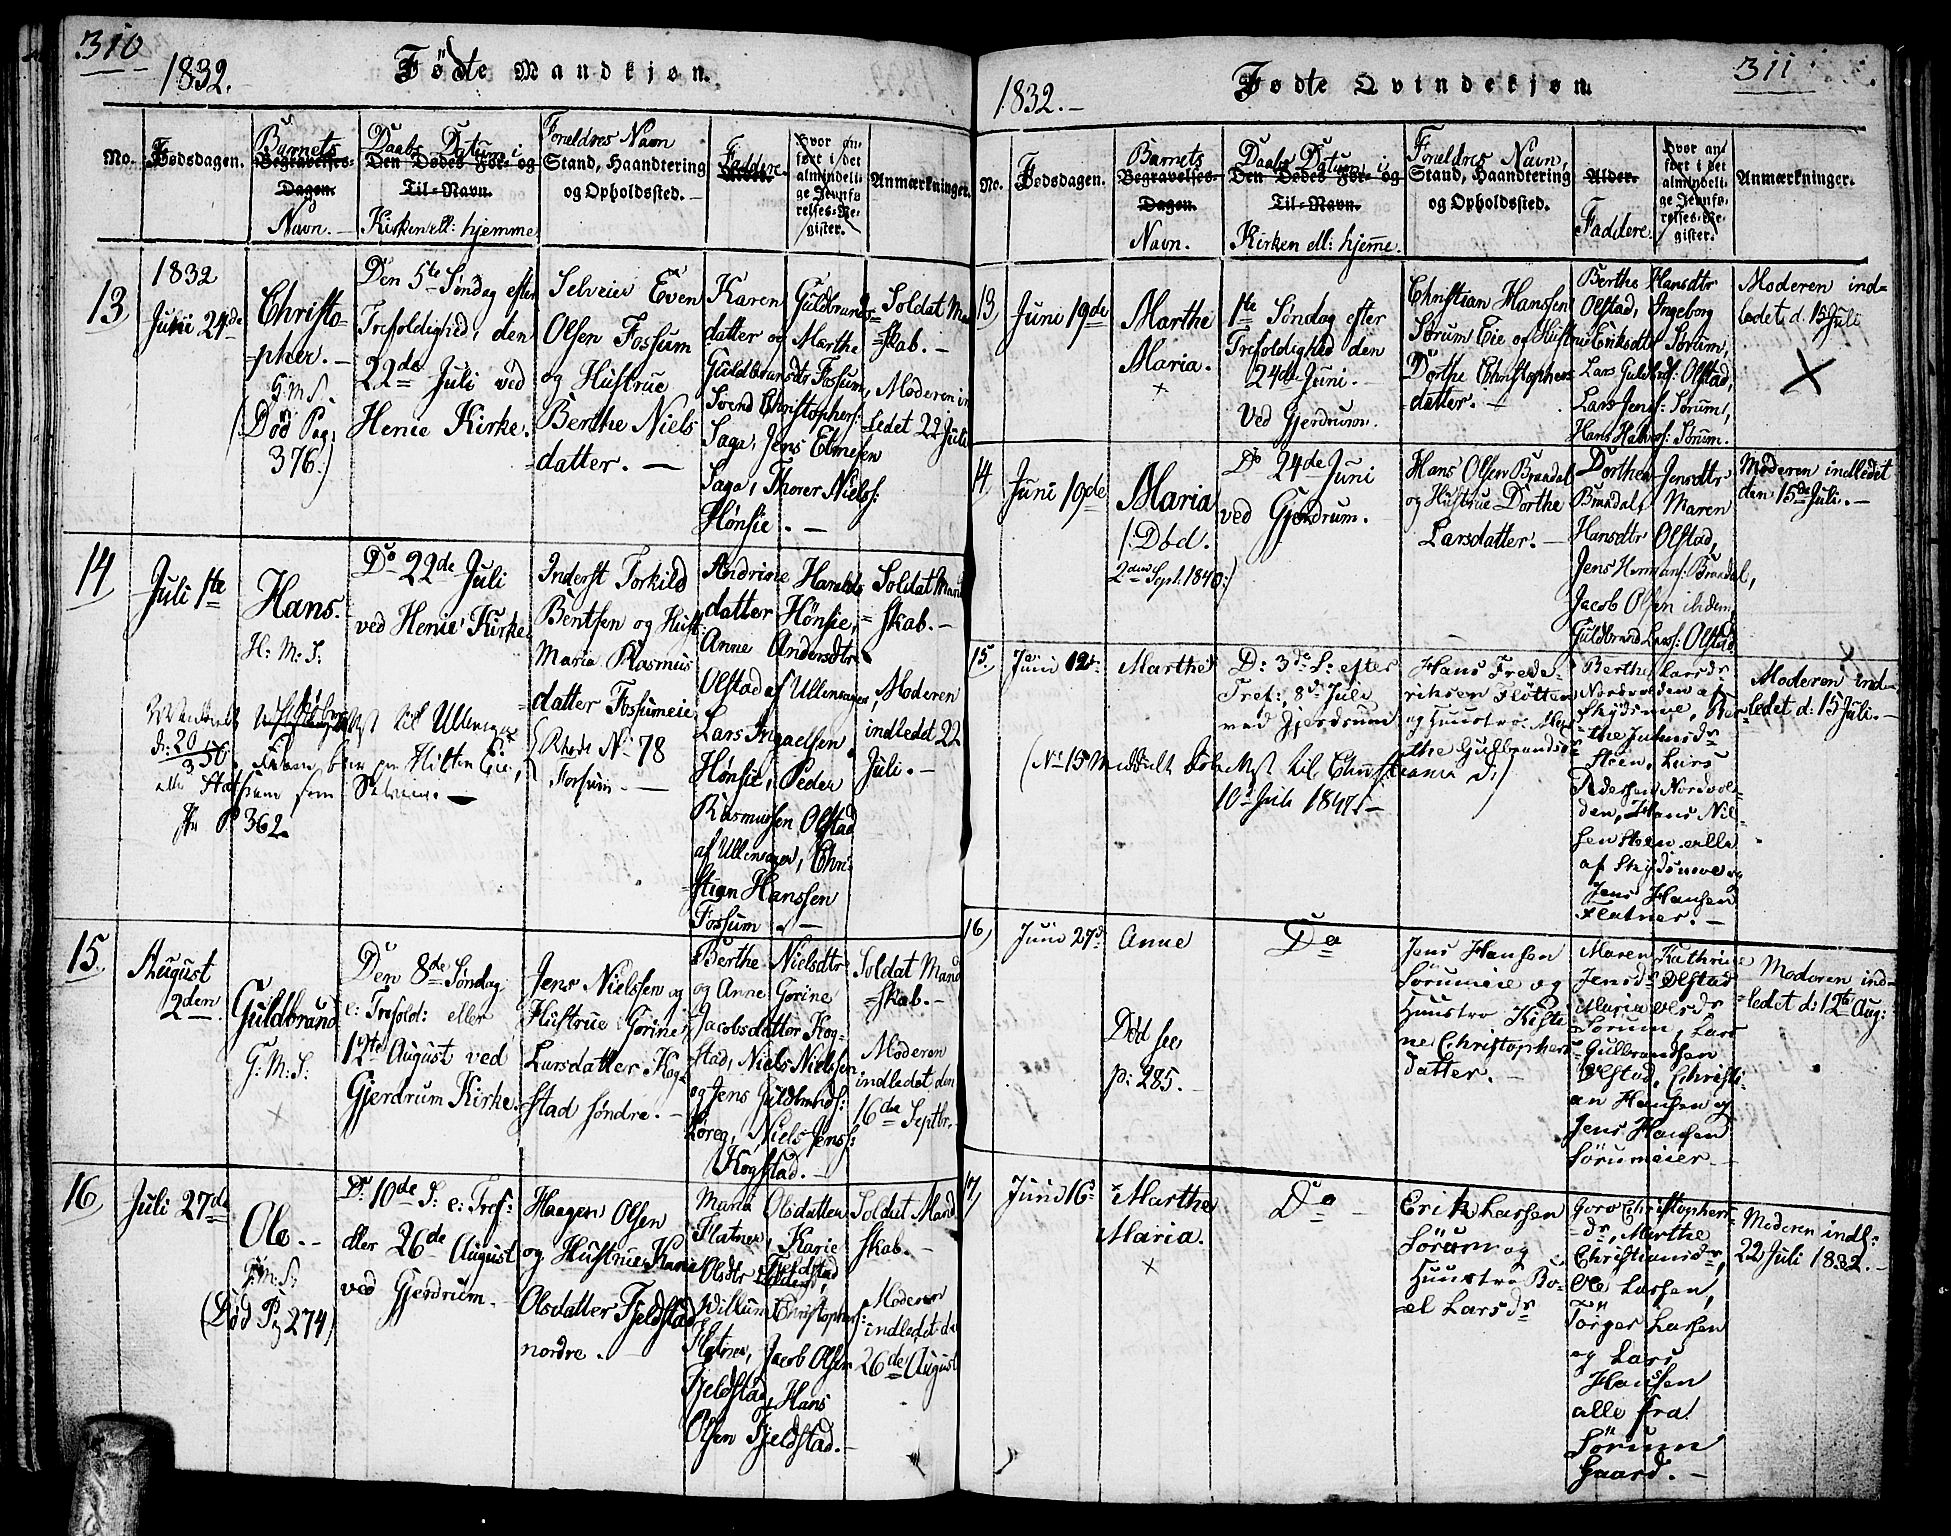 310
1832.
Födte Mandkjøn.
No.
Fødsdagen.
Barnets
Begravelses-
Dagen.
Navn.
Daabs Datum i
Den Dødes For- og
Til-Navn.
Kirken ell: hjemme
Foreldres Navn
Stand, Haandtering
og Opholdssted.
Faddere.
Alder.
Hvor an-
ført i det
almindeli-
ge Jevnfø-
relses-Re-
gister.
Anmærkninger.
13
1832
Junii 24de
Christo-
pher. –
G. M. S.
(Død Pag.
376.)
Den 5te Søndag efter
Trefoldighed, den
22de Juli ved
Henie Kirke.
Selveier Even
Olsen Fossum
og Hustrue
Berthe Niels
=datter. –
Karen Guldbrands=
datter og Marthe
Guldbransdtr Fossum,
Svend Christophers:
Saga, Jens Elmesen
Saga, Thorer Niels:
Hønsie. –
Soldat Man
=skab. –
Moderen in
=ledet 22 Juli
14
Juli 1te
Hans.
H: M: S:
Do 22de Juli
ved Henie Kirke
Inderst Torkild
Bentsen og Hust:
Maria Rasmus
=datter Fossumeie
Rhode No 78
Fossum. –
Andrine Haralds
datter Hönsie,
Anne Andersdtr
Olstad af Ullensager,
Lars Ingaelsen
Hönsie, Peder
Rasmussen Olstad
af Ullensager, Chri-
=stian Hanssen
Fossum. –
Soldat Mand
=skab. –
Moderen
indledet 22
Juli. –
til Ullensager
d: 20/3 50,
som
P 362.
15
August
2den
Guldbrand
G: M: S:
Den 8de Søndag
e: Trefold: eller
12te August ved
Gjerdrum Kirke.
Jens Nielsen og
Hustrue Gorine
Larsdatter Kog-
stad søndre. –
Berthe Nielsdtr
og Anne Gorine
Jacobsdatter Kog-
stad, Niels Nielsen
og Jens Guldbrands:
Löreg, Niels Jens:
Kogstad. –
Soldat Mand
=skab. –
Moderen
indledet den
16de Septbr.
16
Juli 27de
Ole. –
G: M: S:
(Død Pg 274)
Do 10de S: e: Tref:
eller 26de August
ved Gjerdrum.
Haagen Olsen
og Hustrue Karie
Olsdatter Fjeldstad
nordre.
Maria Olsdatter
Flatner, Karie
Olsdtr Fjeldstad
Willum Christophers:
Flatner, Jacob Olsen
Fjeldstad, Hans
Olsen Fjeldstad. –
Soldat Mand
skab. –
Moderen
indledet d.
26de August
311
1832. –
Fødte Qvindekjøn.
No.
Fødsdagen.
Barnets
Begravelses-
Dagen.
Navn.
Daabs Datum i
Den Dødes For- og
Til-Navn.
Kirken ell: hjeme.
Foreldres Navn,
Stand, Haandtering
og Opholdssted.
Alder.
Faddere.
Hvor an
ført i det
almindeli-
ge Jevnfø-
relses-Re-
gister.
Anmærkninger.
13
Juni 19de
Marthe
Maria.
+
1te Søndag efter
Trefoldighed den
24de Juni. –
Ved Gjerdrum
Christian Hanssen
Sørum Eie og Hustrue
Dorthe Christophers
datter. –
Berthe Hansdtr
Olstad, Ingeborg
Eriksdtr Sørum,
Lars Guldbrs: Olstad,
Lars Jens: Sørum,
Hans Halvors: Sørum.
Moderen ind=
ledet d. 15 Juli
14
Juni 19de
Maria
/: Død.
2den Sept: 1840:/
Do 24de Juni
ved Gjerdrum.
Hans Olsen Brændal
og Hustrue Dorthe
Larsdatter. –
Dorthea Jensdtr
Brændal, Maren
Hansdtr Olstad,
Jens Hermans: Brændal,
Jacob Olsen ibidem,
Guldbrand Lars: Olstad.
Moderen indledet
den 15de Juli. –
15.
Juni 12te
Marthe
D: 3de S: efter
Tref:, 8de Juli
ved Gjerdrum
Hans Frede-
riksen Flotten
og Huustro Mar
the Gulbrandsdr
(No 15 Meddelt til Christiania d:
10de Juli 1847. –
Berthe Larsdr
Nordvolden af
Skydsmoe, Mar
the Jensdr
Steen, Lars
Pedersen Nordvol-
den, Hans Nil-
sen Steen alle
af Skydsmoe og
Jens Hansen
Flatner. –
Moderen ind=
ledet d: 15 Juli. –
16
Juni 27de
Anne
Død see
p: 285. –
Do
Jens Hansen
Sörumeie og
Huustro Kisti
ne Christophers
datter. –
Maren Kathrine
Jensdr Olstad
Maria Olsdr
Sörum, Lars
Gulbrandsen
Olstad, Christi-
an Hansen og
Jens Hansen
Sörumeier –
Moderen ind=
=ledet d: 12te Aug:
17
Juni 16de
Marthe
Maria.
+
Do
Erik Larsen
Sörum og
Huustro Bo-
el Larsdr
Goro Christophers-
dr, Marthe
Christiansdr,
Ole Larsen,
Törger Larsen
og Lars
Hansen
alle fra
Sörum
Gaard. –
Moderen indl:
22 Juli 1832. –